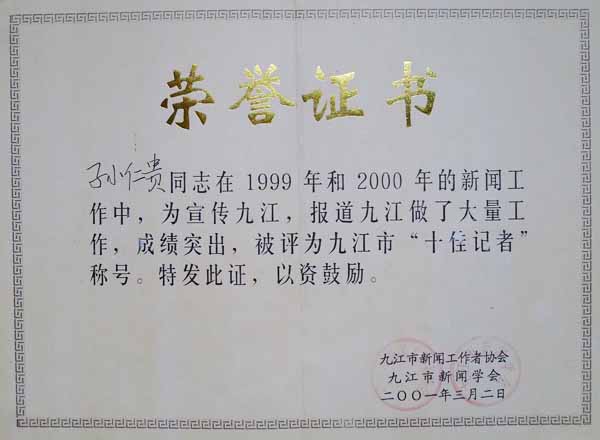 荣誉证书
孙仁贵同志在 1999 年和 2000 年的新闻工
作中，为宣传九江，报道九江做了大量工
作，成绩突出，被评为九江市“十佳记者”
称号。特发此证，以资鼓励。
九江市新闻工作者协会
九江市新闻学会
二〇〇一年三月二日